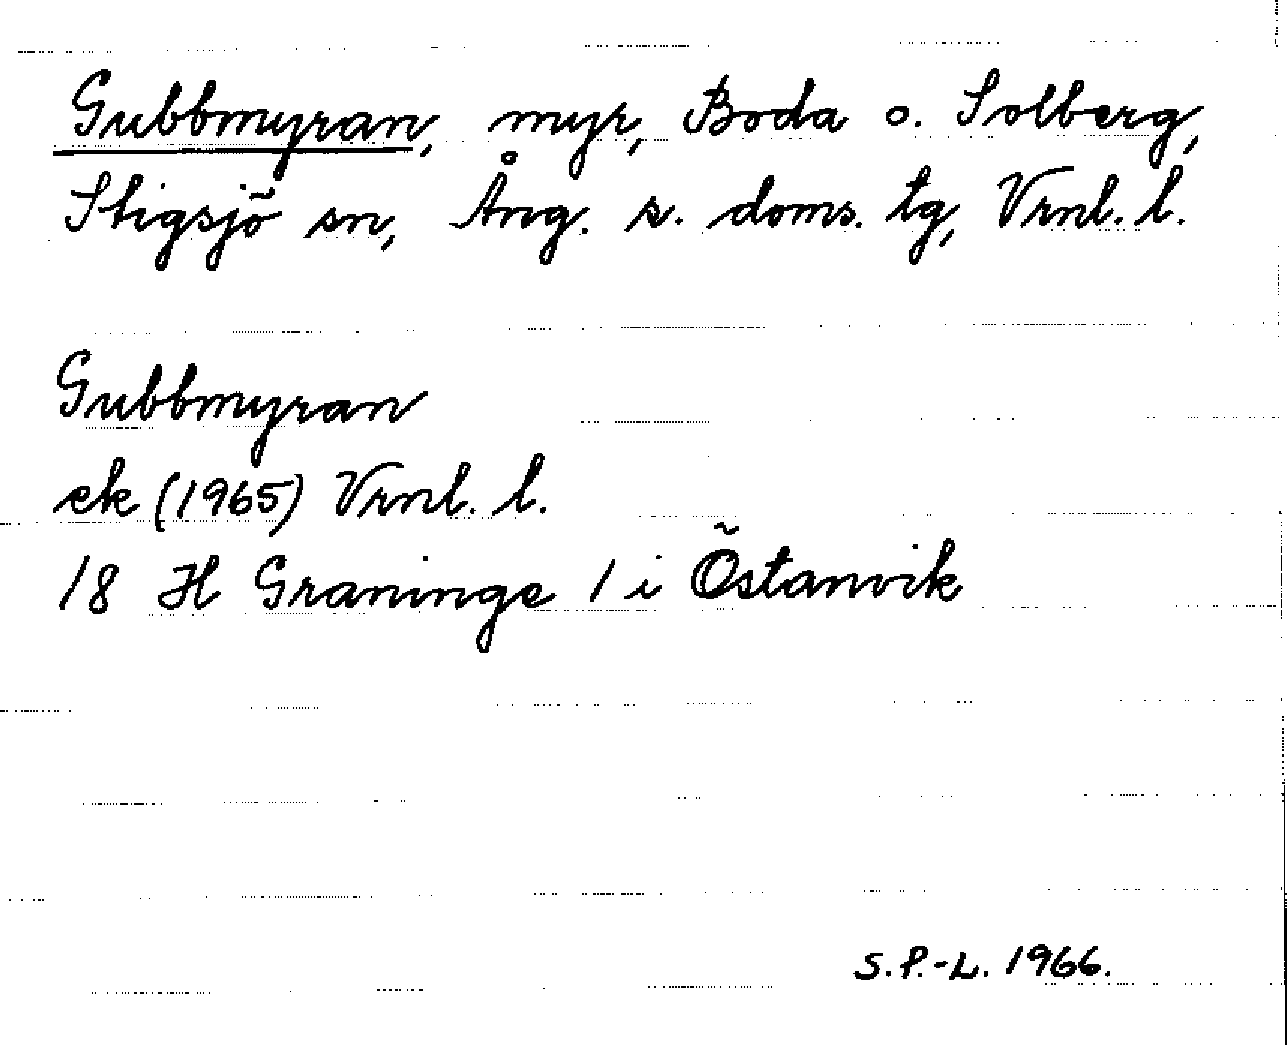 Gubbmyran, myr, Boda o. Solberg,
Stigsjö sn, Ång. s. doms. tg, Vrnl. l.
Gubbmyran
ek (1965) Vrnl. l.
18 H Graninge 1 i Östanvik
S.P.-L. 1966.